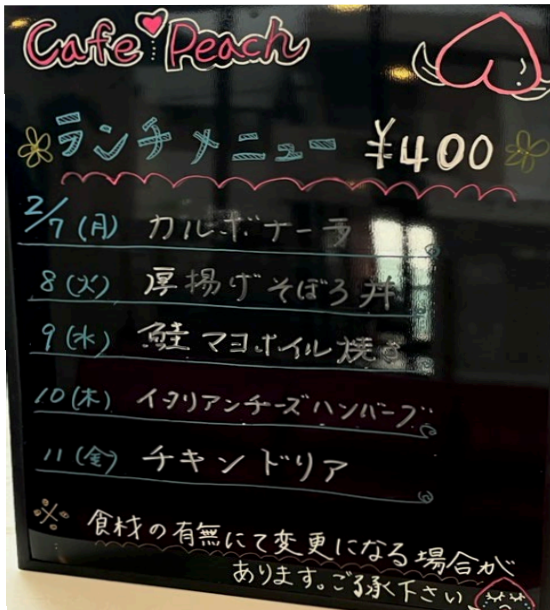 Cafe Peach
ランチメニュー ¥400
2/7(月) カルボナーラ
8(火) 厚揚げそぼろ丼
9(水) 鮭マヨホイル焼き
10(木) イタリアンチーズハンバーグ
11(金) チキンドリア
※ 食材の有無にて変更になる場合が
あります。ご了承下さい